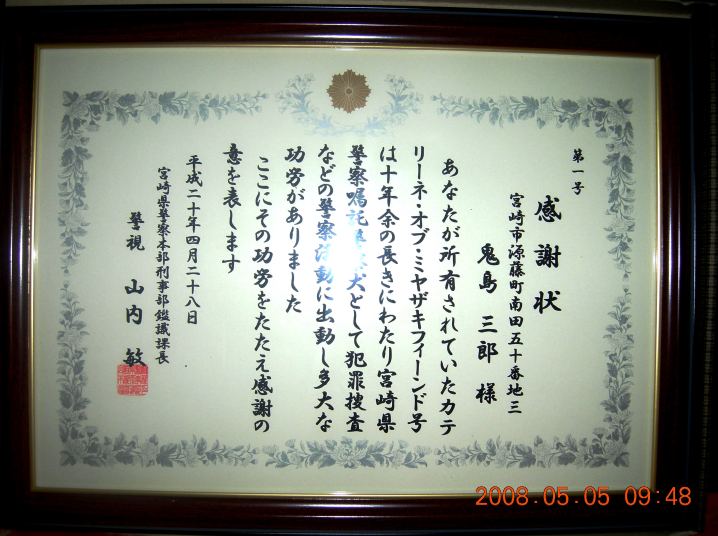 第一号
感謝状
宮崎市源藤町南田五十番地三
鬼島 三郎 様
あなたが所有されていたカテ
リーネ・オブ・ミヤザキフィーンド号
は十年余の長きにわたり宮崎県
警察嘱託警察犬として犯罪捜査
などの警察活動に出動し多大な
功労がありました
ここにその功労をたたえ感謝の
意を表します
平成二十年四月二十八日
宮崎県警察本部刑事部鑑識課長
警視 山内 敏
2008.05.05 09:48